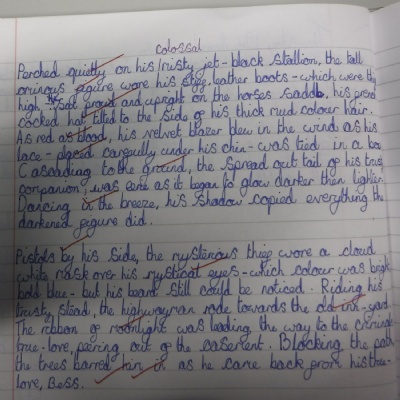 colossal
Perched quietly on his trusty jet-black stallion, the tall
ominous figure wore his leather boots-which were thigh
high, sat proud and upright on the horses saddle, his proud
cocked hat tilted to the side of his thick mud colour hair.
As red as blood, his velvet blazer blew in the wind as his
lace-placed carefully under his chin-was tied in a bow
Cascading to the ground, the spread out tail of his trusty
companion, was eerie as it began to glow darker then lighter.
Dancing in the breeze, his shadow copied everything the
darkened figure did.
Pistols by his side, the mysterious thief wore a cloud
white mask over his mystical eyes-which colour was
bold blue-but his beard still could be noticed. Riding his
trusty stead, the highwayman rode towards the old inn-yard.
The ribbon of moonlight was leading, the way to the criminals
true-love, peering out of the casement. Blocking the path
the trees barred him in as he came back from his true-
love, Bess.